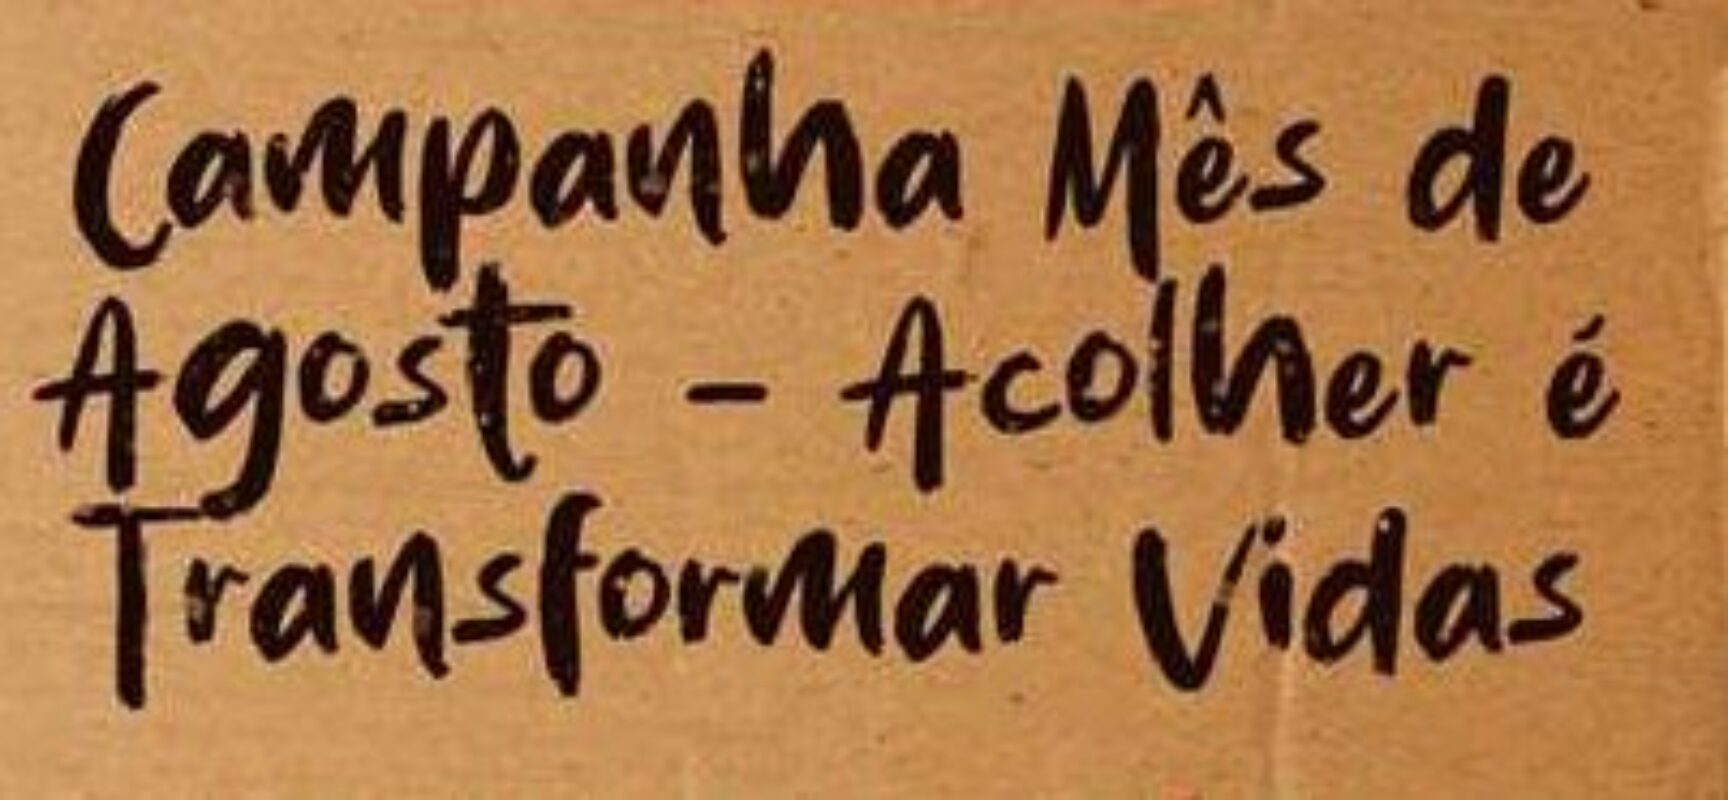 Campanha Mês de
Agosto - Acolher é
Transformar Vidas